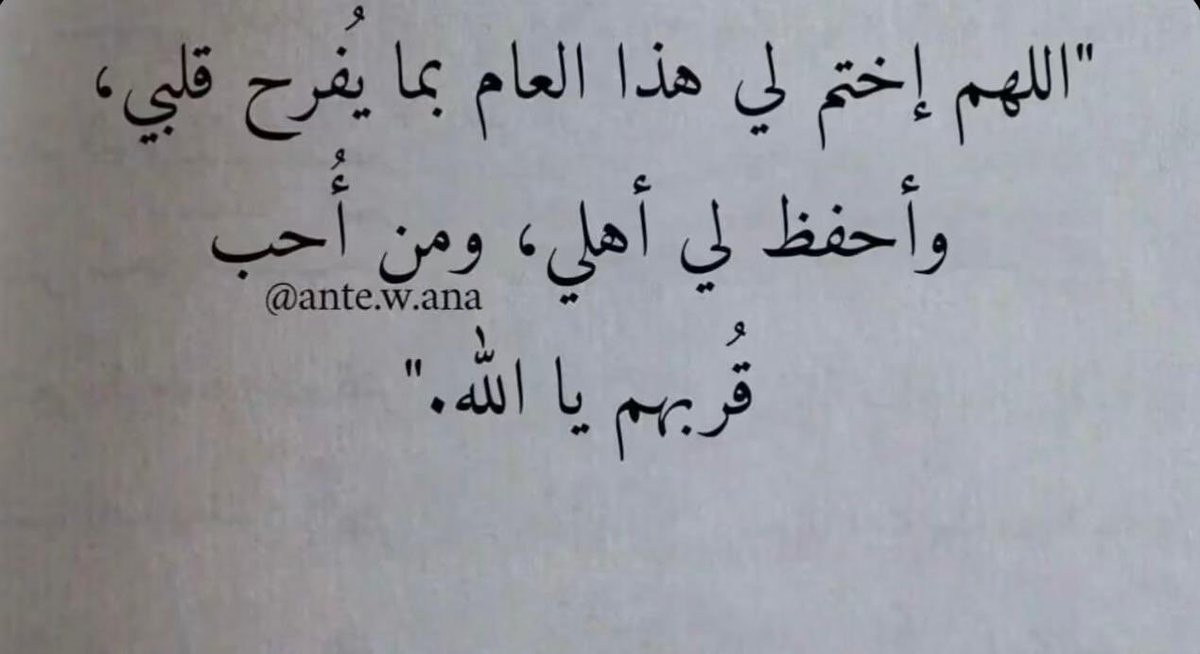 "اللهم إختم لي هذا العام بما يُفرح قلبي،
وأحفظ لي أهلي، ومن أُحب
@ante.w.ana
قُربهم يا الله."